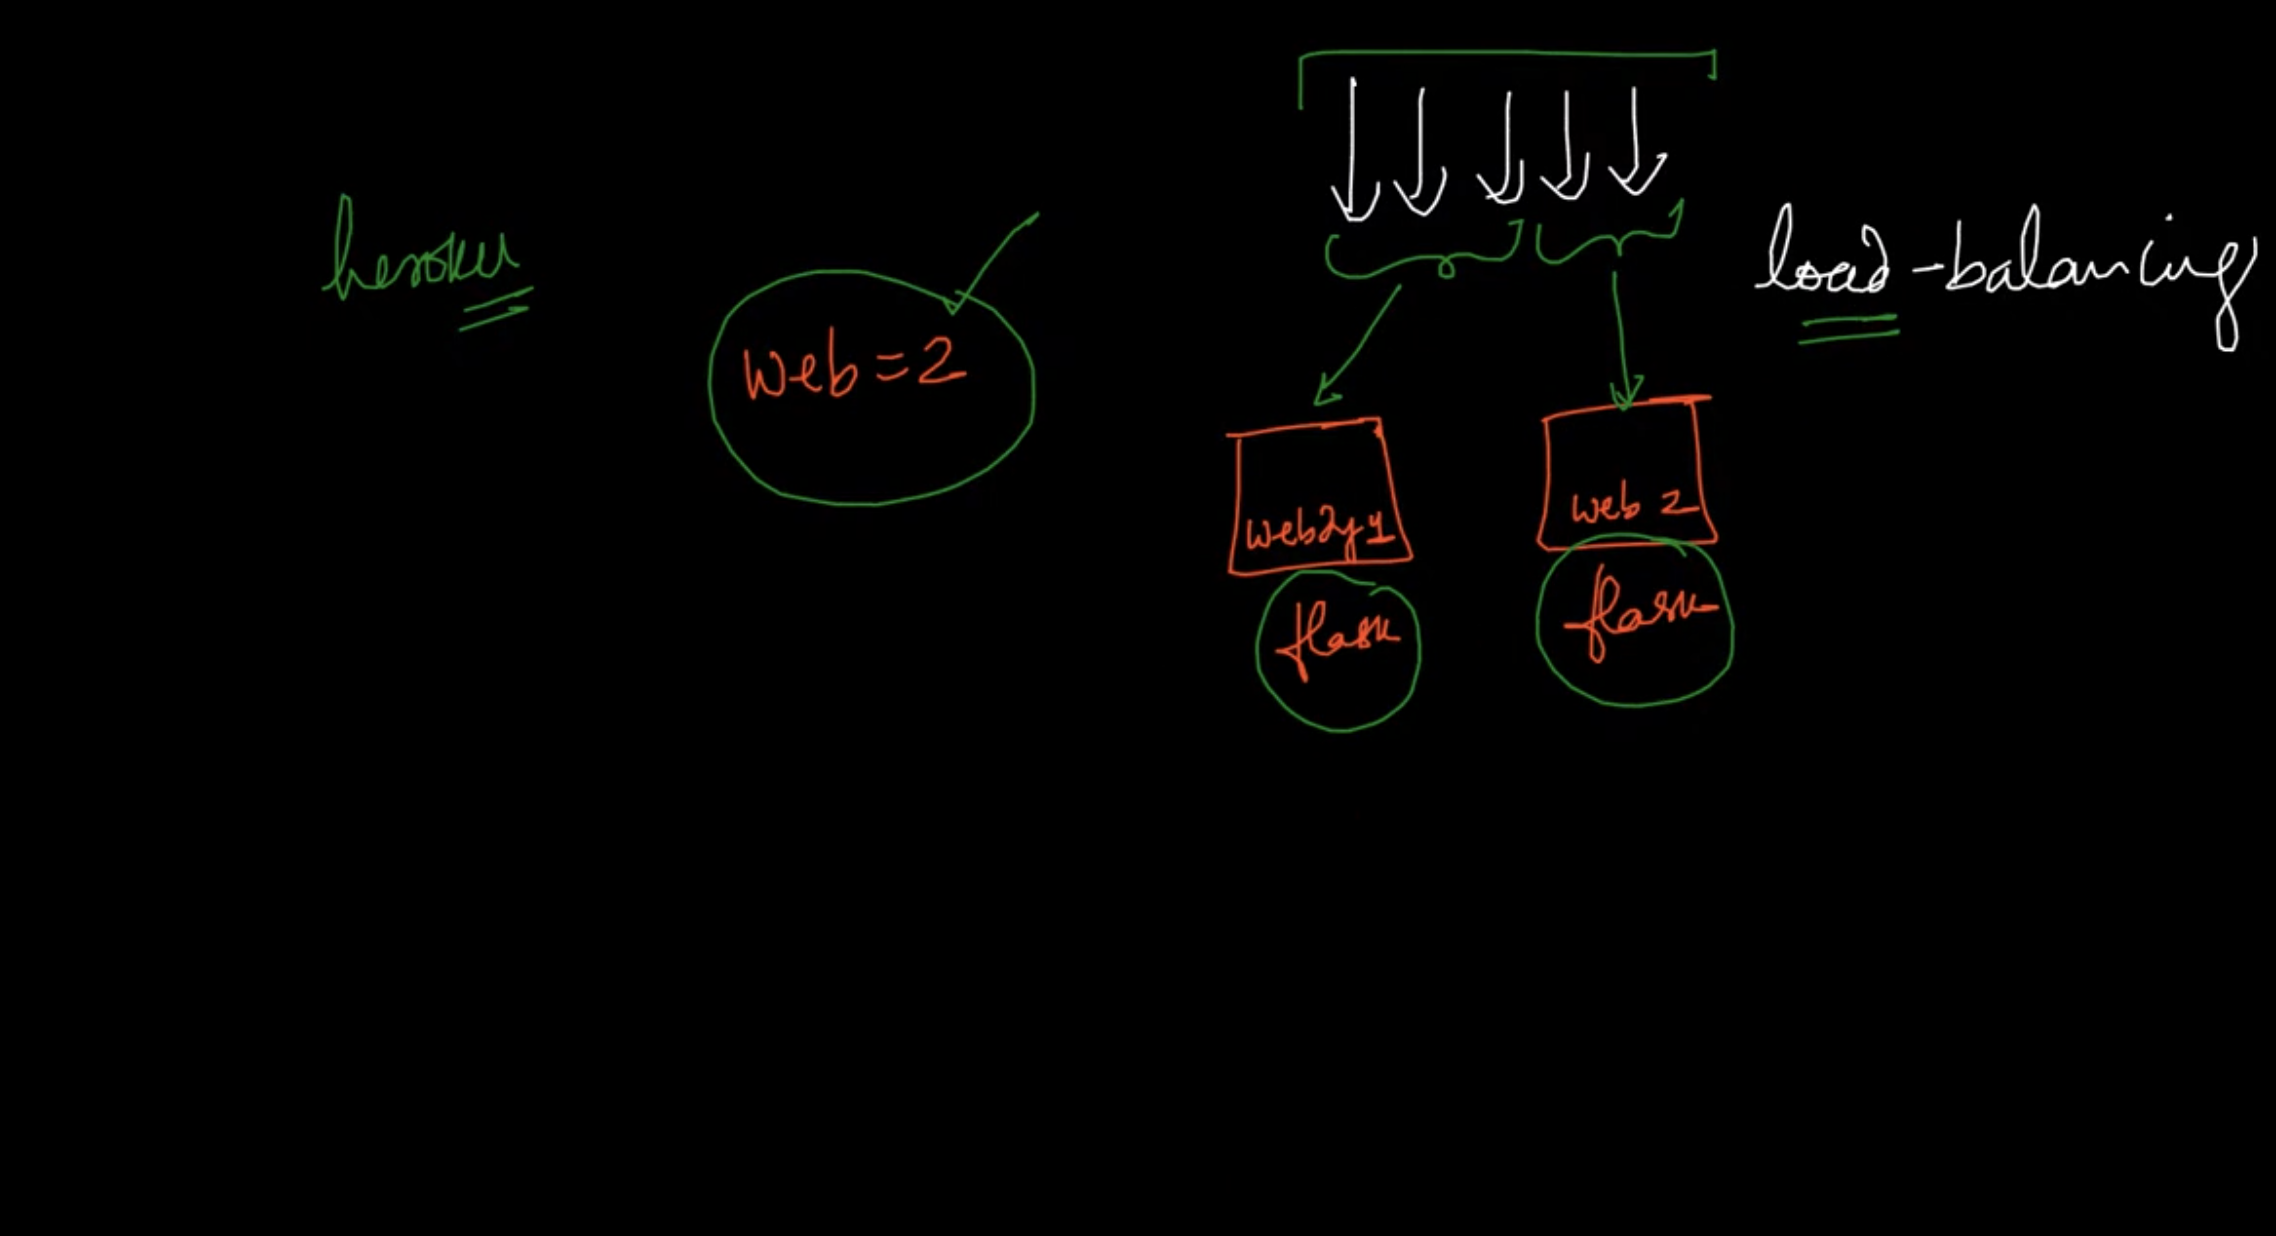 heroku
load-balancing
web=2
web 1
web 2
flask
flask